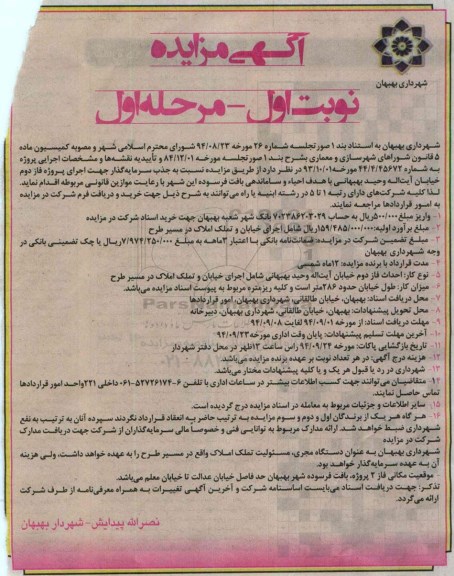 آگهی مزایده
شهرداری بهبهان
نوبت اول - مرحله اول
شهرداری بهبهان به استناد بند ۱ صورتجلسه شماره ۲۶ مورخه ۹۴/۰۸/۲۳ شورای محترم اسلامی شهر و مصوبه کمیسیون ماده
۵ قانون شوراهای شهرسازی و معماری بشرح بند ۱ صورتجلسه مورخه ۸۴/۱۲/۰۱ و تأییدیه نقشه‌ها و مشخصات اجرایی پروژه
به شماره ۴۴/۴/۴۵۶۷۲ مورخه ۹۳/۱۰/۰۱ در نظر دارد از طریق مزایده نسبت به جذب سرمایه‌گذار جهت اجرای پروژه فاز دوم
خیابان آیت‌اله وحید بهبهانی با هدف احیاء و ساماندهی بافت فرسوده این شهر با رعایت موازین قانونی مربوطه اقدام نماید.
لذا کلیه شرکت‌های دارای رتبه ۱ تا ۵ در رشته ابنیه یا راه می‌توانند به شرح ذیل جهت خرید و دریافت فرم شرکت در مزایده
به امور قراردادها مراجعه نمایند.
۱- واریز مبلغ ۵۰۰/۰۰۰ ریال به حساب ۷۰۲۳۸۶۲۰۳۰۲۹ بانک شهر شعبه بهبهان جهت خرید اسناد شرکت در مزایده
۲- مبلغ برآورد اولیه: ۱۵۹/۴۸۵/۰۰۰/۰۰۰ ریال شامل اجرای خیابان و تملک املاک در مسیر طرح
۳- مبلغ تضمین شرکت در مزایده: ضمانتنامه بانکی با اعتبار ۳ ماهه به مبلغ ۷/۹۷۴/۲۵۰/۰۰۰ ریال یا چک تضمینی بانکی در
وجه شهرداری بهبهان
۴- مدت قرارداد با برنده مزایده: ۱۲ ماه شمسی
۵- نوع کار: احداث فاز دوم خیابان آیت‌اله وحید بهبهانی شامل اجرای خیابان و تملک املاک در مسیر طرح
۶- میزان کار: طول خیابان حدود ۲۸۶ متر است و کلیه ریزمتره مربوط به پیوست اسناد مزایده می‌باشد.
۷- محل دریافت اسناد: بهبهان، خیابان طالقانی، شهرداری بهبهان، امور قراردادها
۸- محل تحویل پیشنهادات: بهبهان، خیابان طالقانی، شهرداری بهبهان، دبیرخانه
۹- مهلت دریافت اسناد: از مورخه ۹۴/۰۹/۰۱ لغایت ۹۴/۰۹/۰۸
۱۰- آخرین مهلت تسلیم پیشنهادات: پایان وقت اداری مورخه ۹۴/۰۹/۲۳
۱۱- تاریخ بازگشایی پاکات: مورخه ۹۴/۰۹/۲۴ راس ساعت ۱۳ ظهر در محل دفتر شهردار
۱۲- هزینه درج آگهی: در هر تعداد نوبت بر عهده برنده مزایده می‌باشد.
۱۳- شهرداری در رد یا قبول هر یک و یا کلیه پیشنهادات مختار می‌باشد.
۱۴- متقاضیان می‌توانند جهت کسب اطلاعات بیشتر در ساعات اداری با تلفن ۶-۰۶۱۵۲۷۲۶۱۷۴ داخلی ۲۲۱ واحد امور قراردادها
تماس حاصل نمایند.
۱۵- سایر اطلاعات و جزئیات مربوط به معامله در اسناد مزایده درج گردیده است.
۱۶- هرگاه هر یک از برندگان اول و دوم و سوم مزایده به ترتیب حاضر به انعقاد قرارداد نگردند سپرده آنان به ترتیب به نفع
شهرداری ضبط خواهد شد. ارائه مدارک مربوط به توانایی فنی و خصوصاً مالی سرمایه‌گذاران از شرکت جهت دریافت مدارک
شرکت در مزایده
شهرداری بهبهان به عنوان دستگاه مجری، مسئولیت تملک املاک واقع در مسیر طرح را به عهده خواهد داشت، ولی هزینه
آن به عهده سرمایه‌گذار خواهد بود.
- موقعیت مکانی فاز ۲ پروژه، بافت فرسوده شهر بهبهان حد فاصل خیابان عدالت تا خیابان معلم می‌باشد.
تذکر: جهت دریافت اسناد می‌بایست اساسنامه شرکت و آخرین آگهی تغییرات به همراه معرفی‌نامه از طرف شرکت
ارائه می‌گردد.
نصرالله پیدایش - شهردار بهبهان